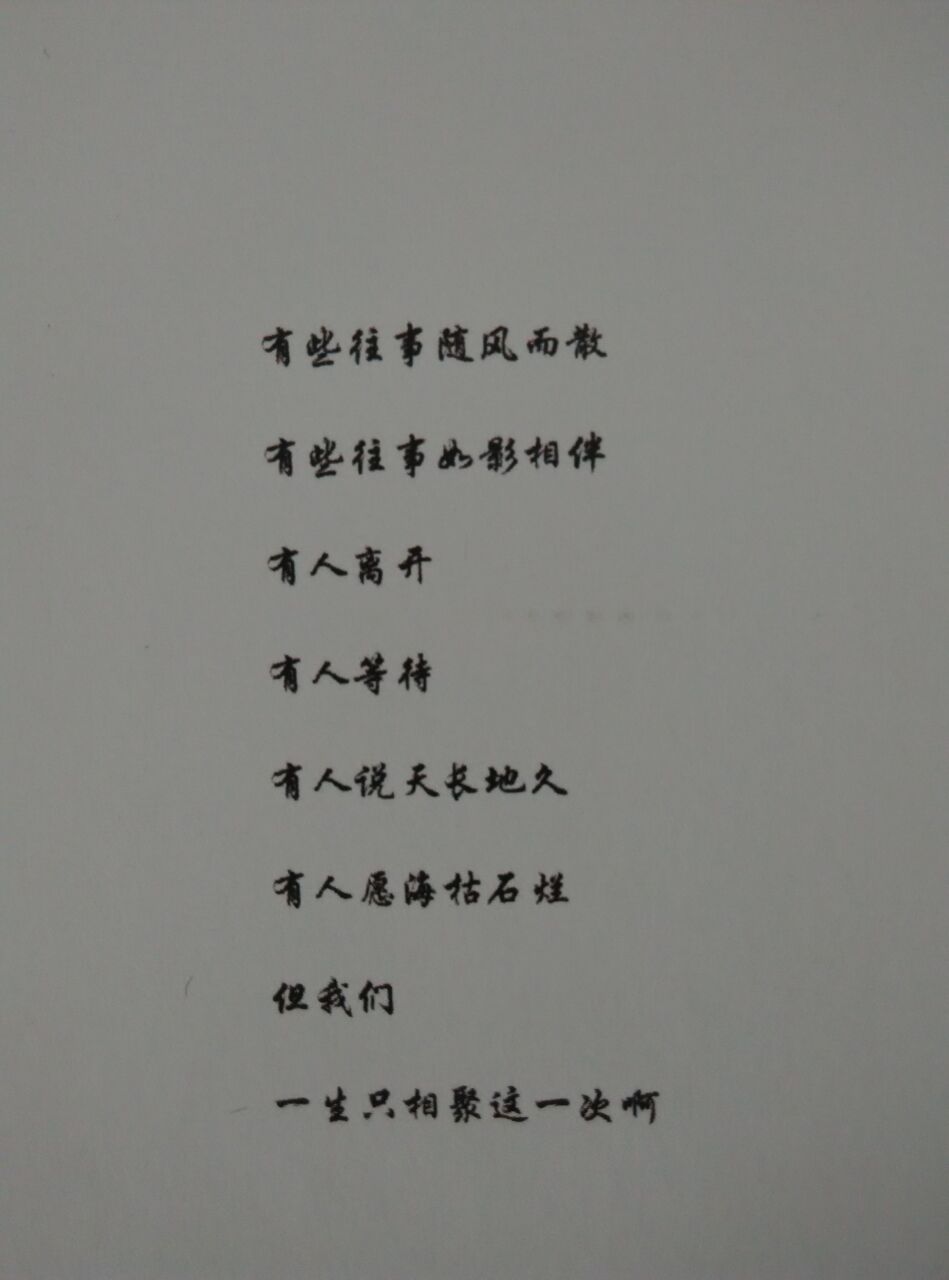 有些往事随风而散
有些往事如影相伴
有人离开
有人等待
有人说天长地久
有人愿海枯石烂
但我们
一生只相聚这一次啊